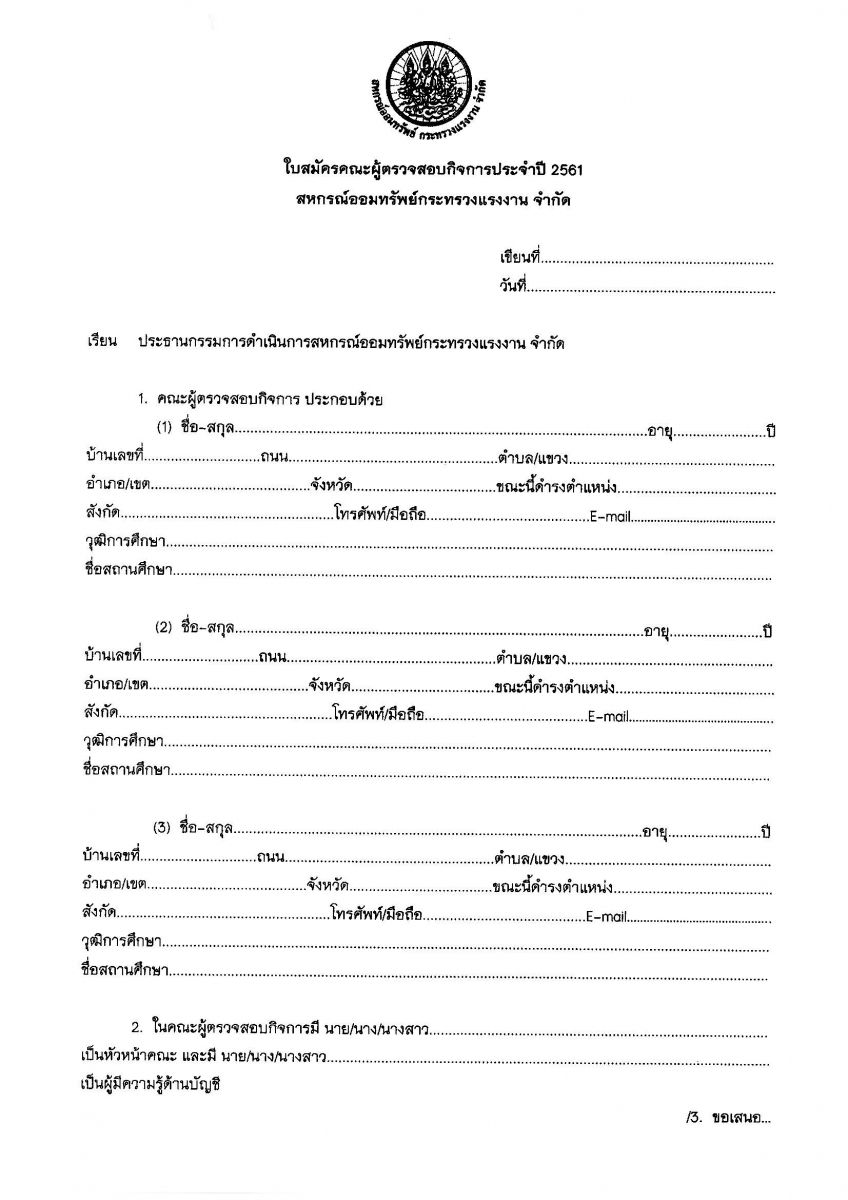 สหกรณ์ออมทรัพย์ กระทรวงแรงงาน จำกัด
ใบสมัครคณะผู้ตรวจสอบกิจการประจำปี 2561
สหกรณ์ออมทรัพย์กระทรวงแรงงาน จำกัด
เขียนที่............................................................
วันที่................................................................
เรียน ประธานกรรมการดำเนินการสหกรณ์ออมทรัพย์กระทรวงแรงงาน จำกัด
1. คณะผู้ตรวจสอบกิจการ ประกอบด้วย
(1) ชื่อ-สกุล..........................................................................................................อายุ........................ปี
บ้านเลขที่..............................ถนน......................................................ตำบล/แขวง.....................................................
อำเภอ/เขต.........................................จังหวัด.....................................ขณะนี้ดำรงตำแหน่ง.........................................
สังกัด.......................................................โทรศัพท์/มือถือ..........................................E-mail..........................................
วุฒิการศึกษา.............................................................................................................................................................
ชื่อสถานศึกษา...........................................................................................................................................................
(2) ชื่อ-สกุล..........................................................................................................อายุ........................ปี
บ้านเลขที่..............................ถนน......................................................ตำบล/แขวง.....................................................
อำเภอ/เขต.........................................จังหวัด.....................................ขณะนี้ดำรงตำแหน่ง.........................................
สังกัด.......................................................โทรศัพท์/มือถือ..........................................E-mail..........................................
วุฒิการศึกษา.............................................................................................................................................................
ชื่อสถานศึกษา...........................................................................................................................................................
(3) ชื่อ-สกุล..........................................................................................................อายุ........................ปี
บ้านเลขที่..............................ถนน......................................................ตำบล/แขวง.....................................................
อำเภอ/เขต.........................................จังหวัด.....................................ขณะนี้ดำรงตำแหน่ง.........................................
สังกัด.......................................................โทรศัพท์/มือถือ..........................................E-mail..........................................
วุฒิการศึกษา.............................................................................................................................................................
ชื่อสถานศึกษา...........................................................................................................................................................
2. ในคณะผู้ตรวจสอบกิจการมี นาย/นาง/นางสาว.......................................................................................
เป็นหัวหน้าคณะ และมี นาย/นาง/นางสาว..................................................................................................................
เป็นผู้มีความรู้ด้านบัญชี
/3. ขอเสนอ...